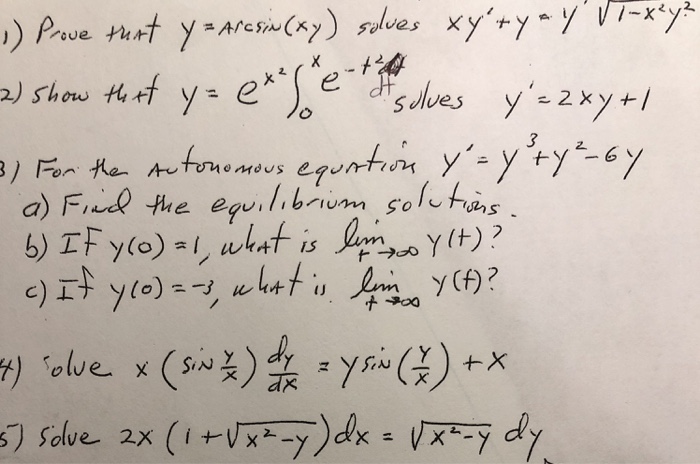 1) Prove that y = Arcsin(xy) solves xy' + y = y' √1-x²y²
2) show that y = e^x² ∫₀^x e^-t² dt solves y' = 2xy+1
3) For the Autonomous equation y' = y³+y²-6y
a) Find the equilibrium solutions.
b) If y(0) = 1, what is lim t→∞ y(t)?
c) If y(0) = -3, what is lim t→∞ y(t)?
4) solve x (sin y/x) dy/dx = y sin(y/x) + x
5) solve 2x (1+√x²-y)dx = √x²-y dy